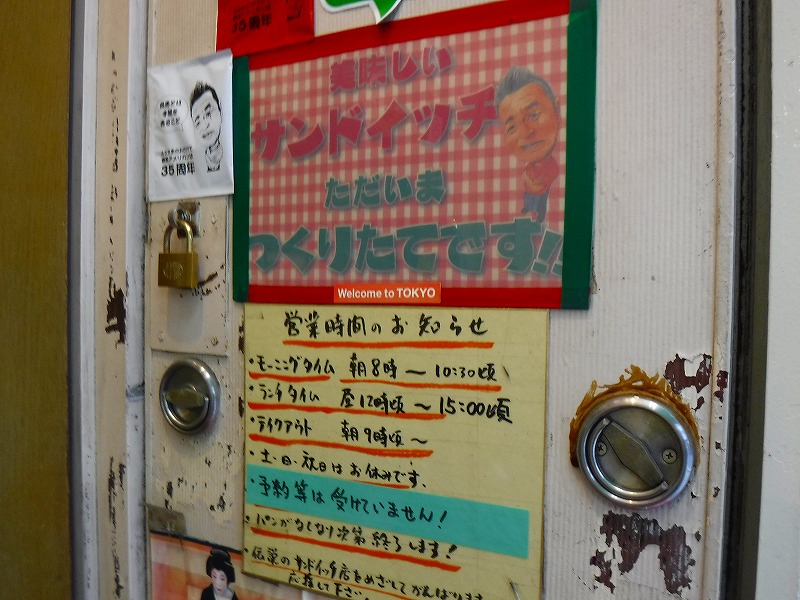 35周年
35周年
美味しい
サンドイッチ
ただいま
つくりたてです!!
Welcome to TOKYO
営業時間のお知らせ
・モーニングタイム 朝8時〜10:30頃
・ランチタイム 昼12時頃〜15:00頃
・テイクアウト 朝9時頃〜
・土・日・祝日はお休みです.
・予約等は受けていません!
・パンがなくなり次第終了します!
・伝説のサンドイッチ店をめざしてがんばります
応援して下さい